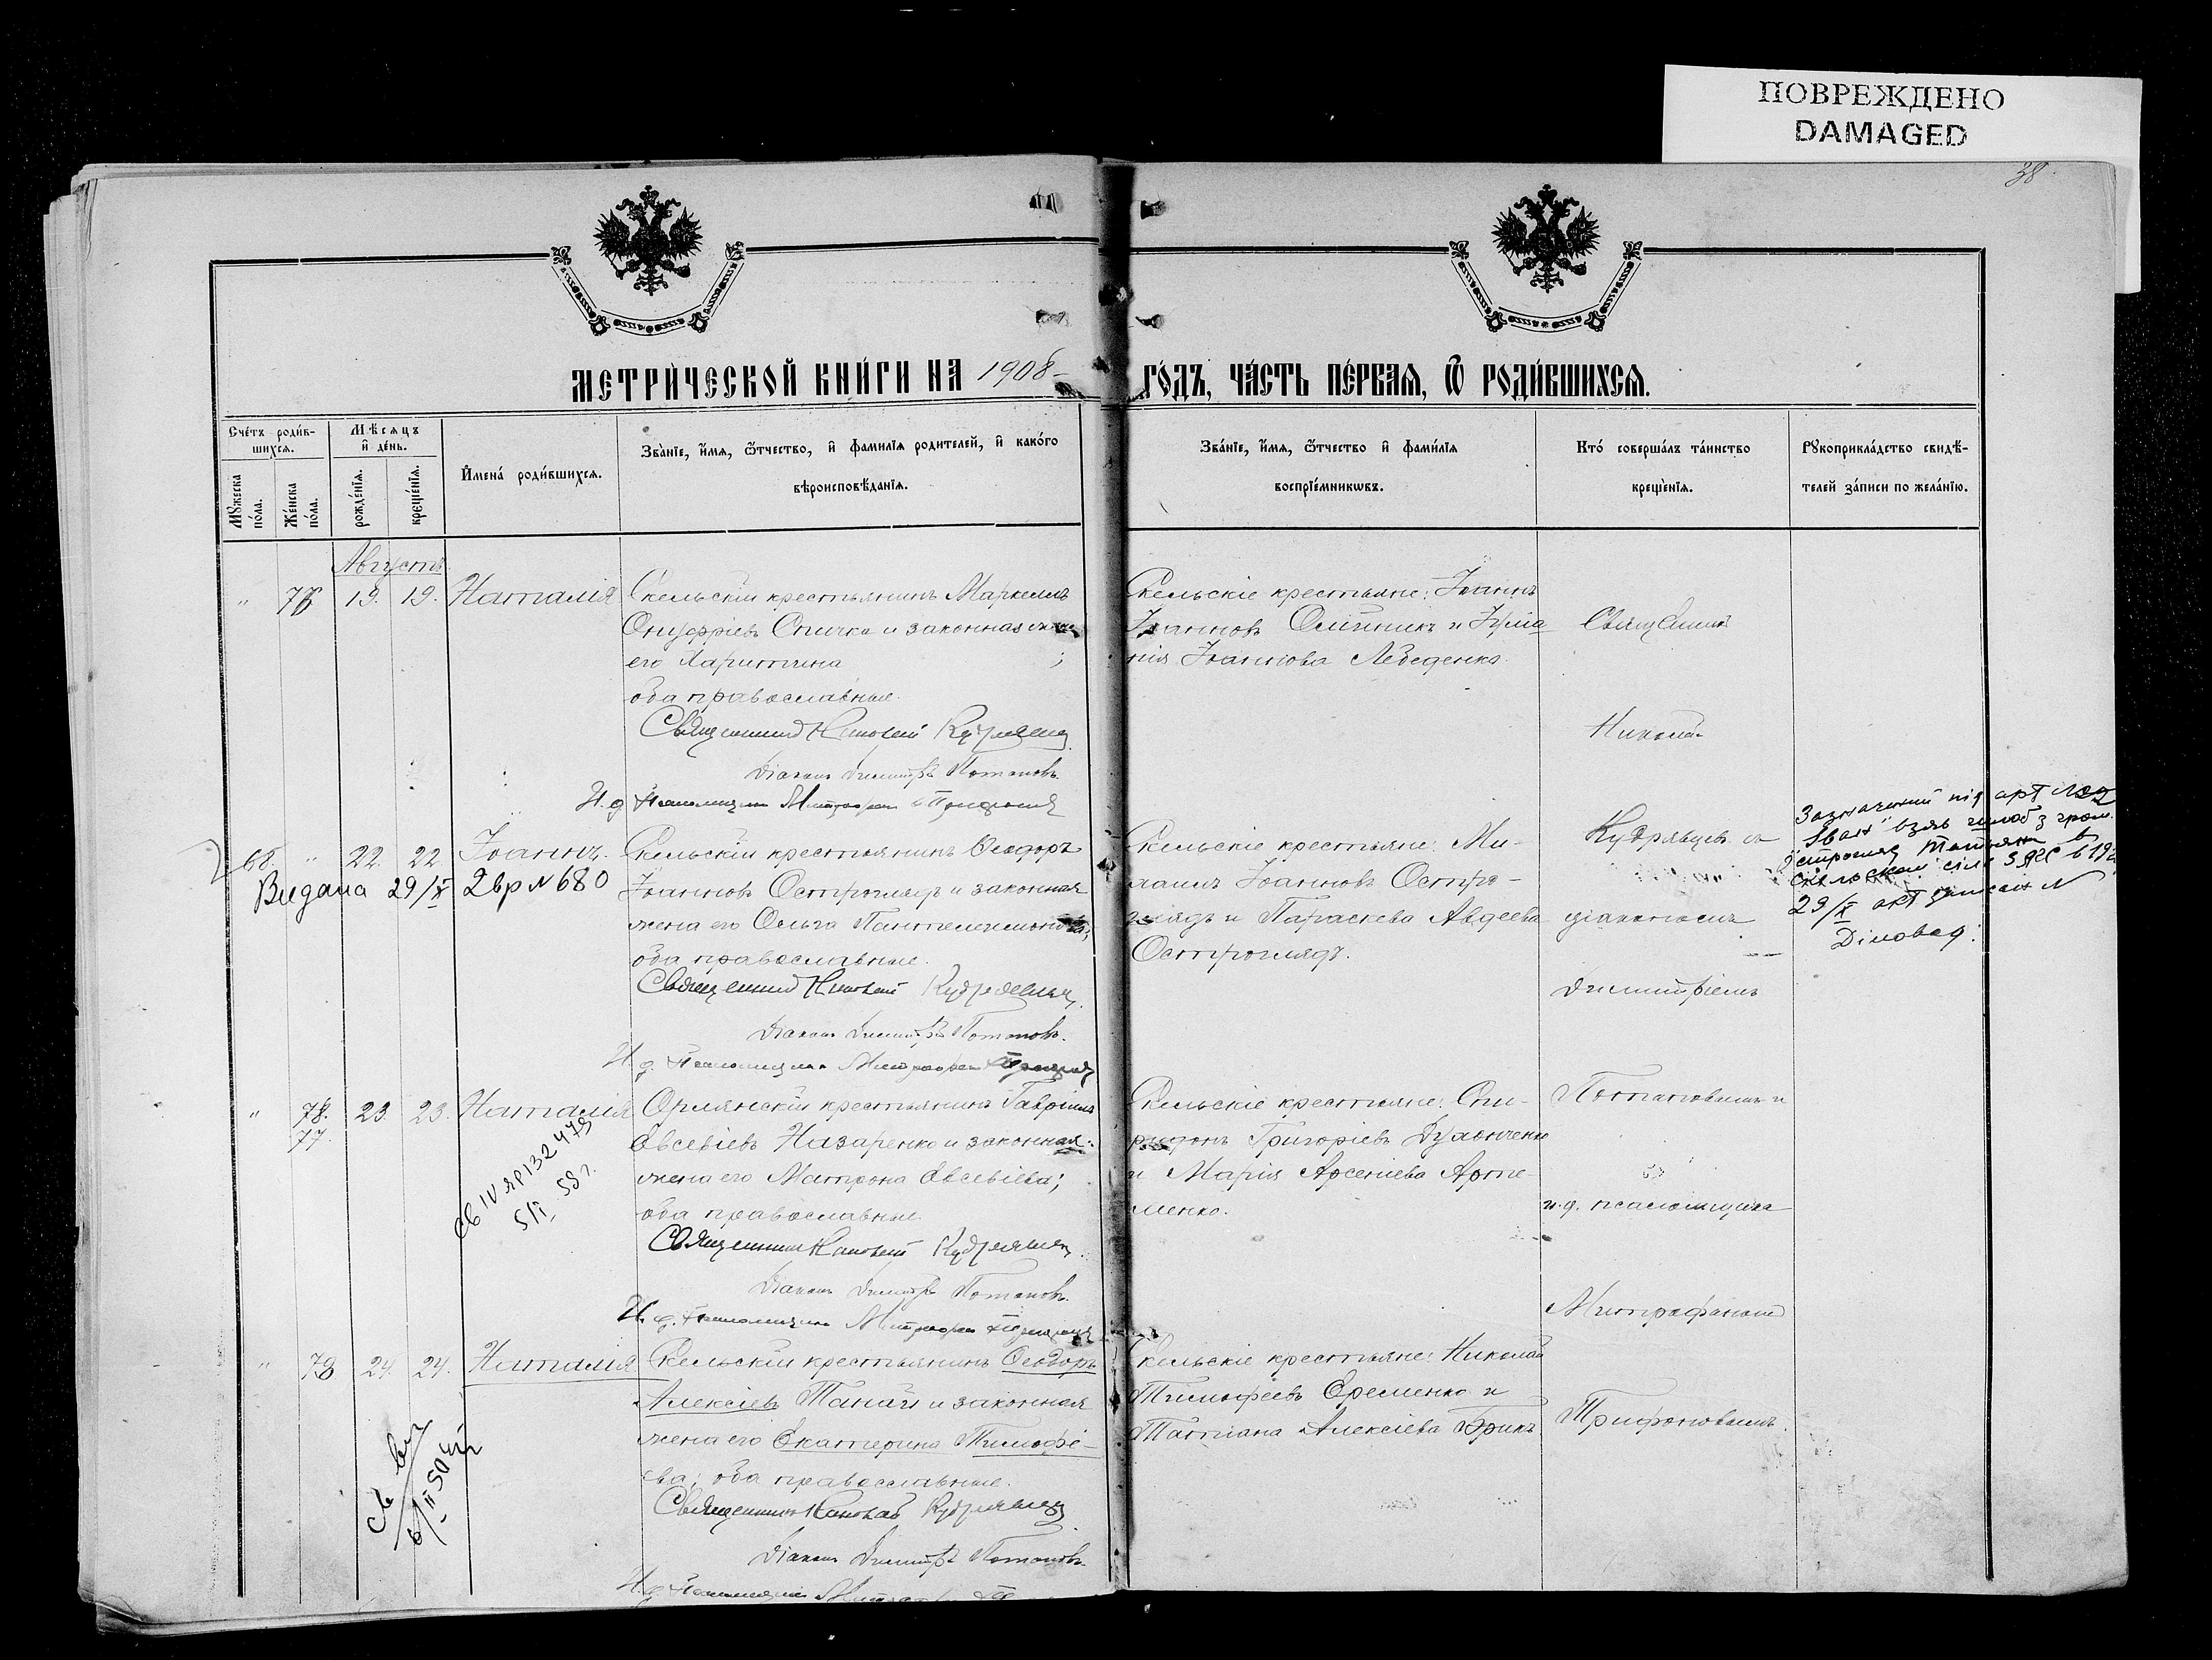 ПОВРЕЖДЕНО
DAMAGED
38.
МЕТРИЧЕСКОЙ КНИГИ НА 1908 ГОДЪ, ЧАСТЬ ПЕРВАЯ, Ѿ РОДИВШИХСЯ.
Счетъ родившихся.
Мужеска пола.
Женска пола.
Мѣсяцъ и день.
рожденія.
крещенія.
Имена родившихся.
Званіе, имя, ѿтчество, и фамилія родителей, и какого
вѣроисповѣданія.
Званіе, имя, ѿтчество и фамилія
воспріемниковъ.
Кто совершалъ таинство
крещенія.
Рукоприкладство свидѣ-
телей записи по желанію.
Августъ
" 76 19. 19. Наталія
Скельскій крестьянинъ Маркеллъ
Онуфріевъ Спичка и законная жена
его Харитина ;
оба православные.
Священникъ Николай Кудрявцев
Діаконъ Димитрій Потаповъ.
И. д. Псаломщика Митрофанъ
Скельскіе крестьяне: Іоаннъ
Іоанновъ Олійникъ и Іулiа
нія Іоаннова Лебеденко.
Священникъ
Николай
Кудрявцевъ съ
діакономъ
Димитріемъ
Потаповымъ и
и. д. псаломщика
Митрофаномъ
Трифоновымъ.
68. " 22. 22. Іоаннъ.
Видана 29/X 2вр №680
Скельскій крестьянинъ Ѳеодоръ
Іоанновъ Остроглядъ и законная
жена его Ольга Пантелеимонова;
оба православные.
Священникъ Николай Кудрявцев
Діаконъ Димитрій Потаповъ.
И. д. Псаломщика Митрофанъ
Скельскіе крестьяне: Ми-
хаилъ Іоанновъ Остро-
глядъ и Параскева Авдеева
Остроглядъ.
Іван взяв шлюб з гром.
29/X акт записан №
Діловод:
" 78. 23. 23. Наталія
77.
5/I, 59 г.
Орлянскій крестьянинъ Гавріилъ
Евсевіевъ Назаренко и законная
жена его Матрона Евсевіева;
оба православные.
Священникъ Николай Кудрявцев
Діаконъ Димитрій Потаповъ.
И. д. Псаломщика Митрофанъ
Скельскіе крестьяне: Спи-
ридонъ Григоріевъ
и Марія Арсеніева Арте-
менко.
" 78 24. 24. Наталія
Скельскій крестьянинъ Ѳеодоръ
Алексіевъ Танагы и законная
жена его Екатерина Тимофѣ-
ева; оба православные.
Священникъ Николай Кудрявцев
Діаконъ Димитрій Потаповъ.
И. д. Псаломщика
Скельскіе крестьяне: Николай
Тимофеевъ Еременко и
Татіана Алексіева Брикъ